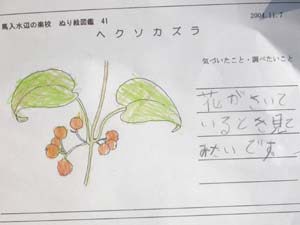 馬入水辺の楽校 ぬり絵図鑑 41
2004.11.7
ヘクソカズラ
気づいたこと・調べたいこと
花がさいて
いるとき見て
みたいです